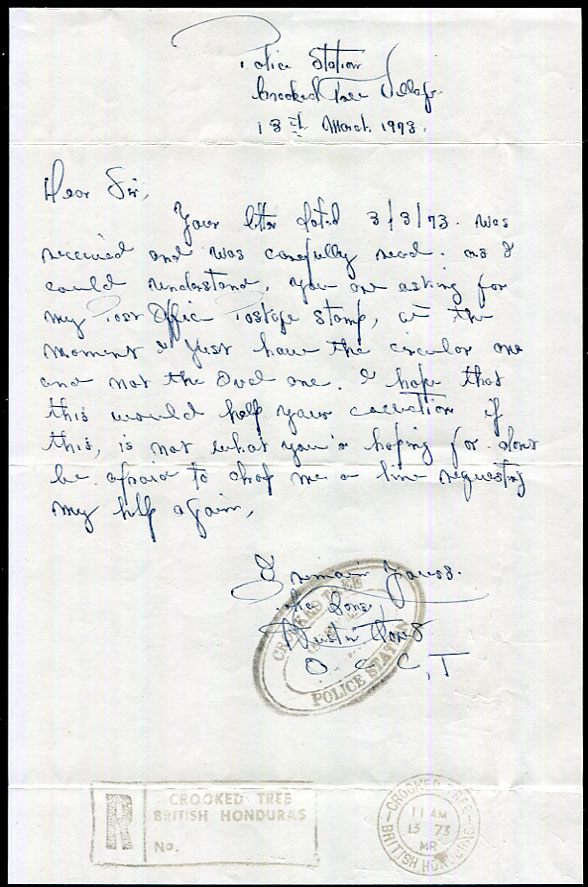 Police Station
Crooked Tree Village
13th March. 1973.
Dear Sir,
Your letter dated 3/3/73. was
received and was carefully read. as I
could understand, you are asking for
my Post Office Postage stamp, at the
moment I just have the circular one
and not the Oval one. I hope that
this would help your collection if
this, is not what you'r hoping for. dont
be afraid to drop me a line requesting
my help again,
I remain Yours.
O. C. C. T
CROOKED TREE
POLICE STATION
R
CROOKED TREE
BRITISH HONDURAS
No.
CROOKED TREE
11 AM
15 73
MR
BRITISH HONDURAS